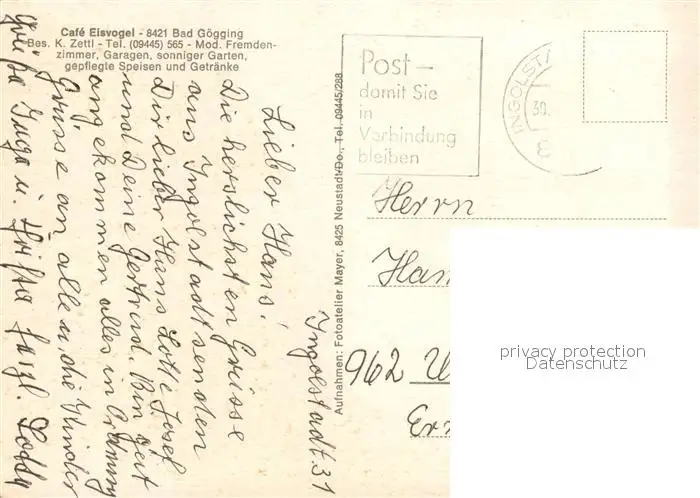 Café Eisvogel - 8421 Bad Gögging
Bes. K. Zettl - Tel. (09445) 565 - Mod. Fremden-
zimmer, Garagen, sonniger Garten,
gepflegte Speisen und Getränke
Ingolstadt. 31
Lieber Hans!
Die herzlichsten Grüsse
aus Ingolstadt senden
Dir lieber Hans Lotte Josef
und Deine Gertrud. Bin gut
angekommen alles in Ordnung
Grüsse an alle u. die Kinder
Inga u.
Aufnahmen: Fotoatelier Mayer, 8425 Neustadt/Do., Tel. 09445/288
Post –
damit Sie
in
Verbindung
bleiben
INGOLSTA
30.
8
Herrn
Han
962 U
Er
privacy protection
Datenschutz